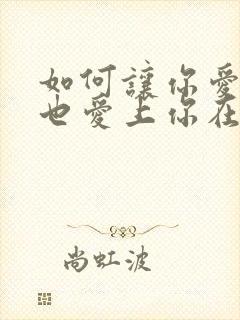 如何讓你愛
也愛上你在
尚虹波